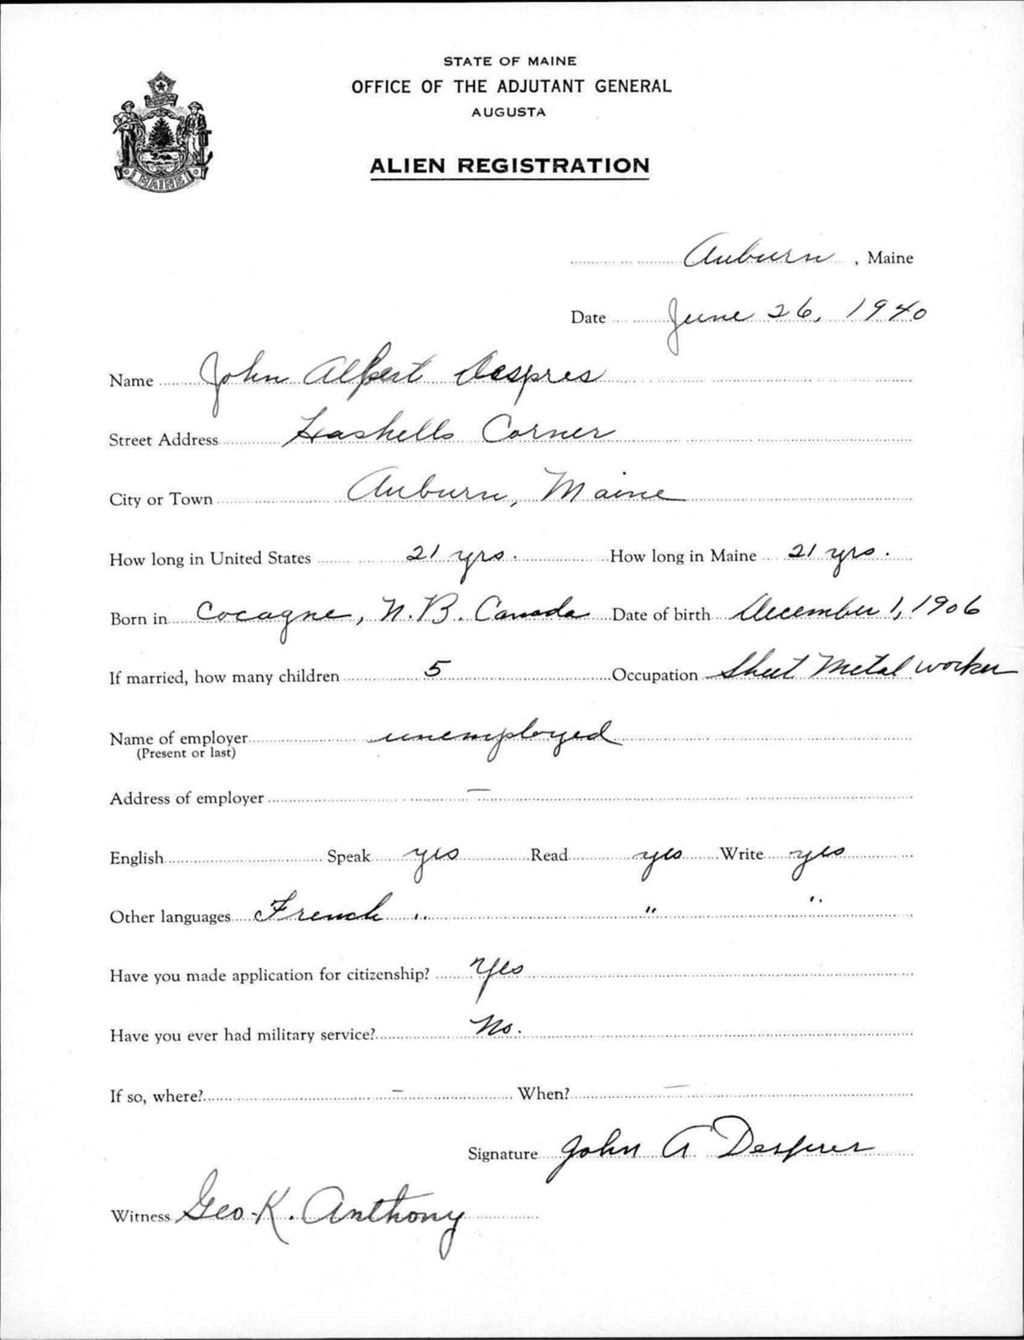 STATE OF MAINE
OFFICE OF THE ADJUTANT GENERAL
AUGUSTA
ALIEN REGISTRATION
MAINE
Auburn, Maine
Date June 26, 1940
Name John Albert Despres
Street Address Haskells Corner
City or Town Auburn, Maine
How long in United States 21 yrs. How long in Maine 21 yrs.
Born in Cocagne, N.B. Canada Date of birth December 1, 1906
If married, how many children 5 Occupation Sheet Metal worker
Name of employer unemployed
(Present or last)
Address of employer —
English Speak yes Read yes Write yes
Other languages French " " "
Have you made application for citizenship? Yes
Have you ever had military service? No.
If so, where? — When? —
Signature John A Desprer
Witness Geo. K. Anthony